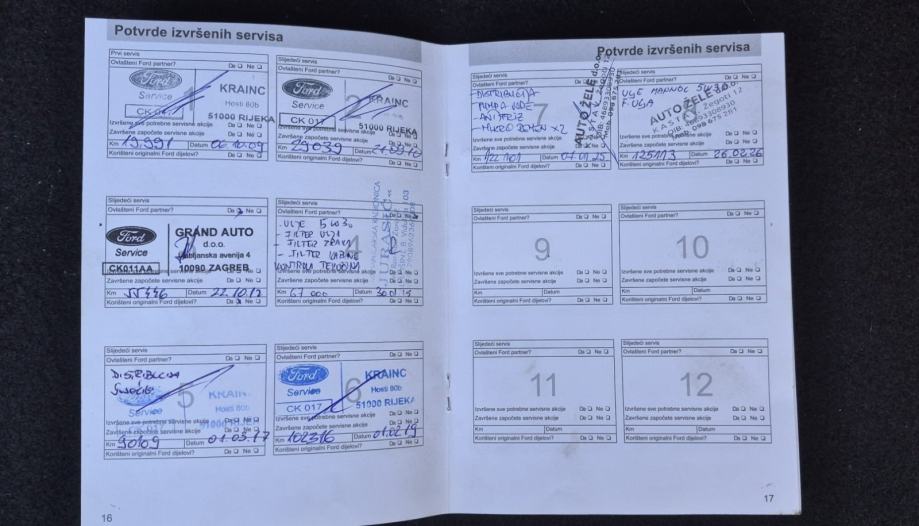 Potvrde izvršenih servisa
Prvi servis
Ovlašteni Ford partner? Da Ne
Ford
Service
1
KRAINC
Hosti 80b
51000 RIJEKA
Izvršene sve potrebne servisne akcije
Završene započete servisne akcije Da Ne
Km 19.991 Datum
Korišteni originalni Ford dijelovi? Da Ne
Slijedeći servis
Ovlašteni Ford partner? Da Ne
Ford
Service
2
CK 017
KRAINC
Hosti 80b
51000 RIJEKA
Izvršene sve potrebne servisne akcije
Završene započete servisne akcije Da Ne
Km 29039 Datum
Korišteni originalni Ford dijelovi? Da Ne
Slijedeći servis
Ovlašteni Ford partner? Da Ne
Ford
Service
CK011AA
GRAND AUTO
d.o.o.
Ljubljanska avenija 4
10090 ZAGREB
Završene započete servisne akcije Da Ne
Km Datum 22.10.12
Korišteni originalni Ford dijelovi? Da Ne
Slijedeći servis
Ovlašteni Ford partner? Da Ne
4
- ULJE 5W30
- FILTER ULJA
- FILTER ZRAKA
- FILTER KABINE
KONTROLA TEKUĆINA
JURASEC
Završene započete servisne akcije Da Ne
Km 67 000 Datum
Korišteni originalni Ford dijelovi? Da Ne
Slijedeći servis
Ovlašteni Ford partner? Da Ne
DISTRIBUCIJA
5
Service
KRAINC
Hosti 80b
51000 RIJEKA
Izvršene sve potrebne servisne akcije Da Ne
Završene započete servisne akcije Da Ne
Km 90109 Datum 01.03.17
Korišteni originalni Ford dijelovi? Da Ne
Slijedeći servis
Ovlašteni Ford partner? Da Ne
Ford
Service
6
CK 017
KRAINC
Hosti 80b
51000 RIJEKA
Izvršene sve potrebne servisne akcije Da Ne
Završene započete servisne akcije Da Ne
Km 102316 Datum 01.02.19
Korišteni originalni Ford dijelovi? Da Ne
16
Potvrde izvršenih servisa
Slijedeći servis
Ovlašteni Ford partner?
7
- DISTRIBUCIJA
- PUMPA VODE
- ANTIFRIZ
- MIKRO REMEN X2
AUTO ŽELE d.o.o.
Završene započete servisne akcije Da Ne
Km 122 101 Datum 07.01.25
Korišteni originalni Ford dijelovi? Da Ne
Slijedeći servis
Ovlašteni Ford partner? Da Ne
ULJE MANNOL 5W30
F. ULJA
AUTO ŽELE d.o.o.
Izvršene sve potrebne servisne akcije Da Ne
Završene započete servisne akcije Da Ne
Km 125113 Datum 26.02.26
Korišteni originalni Ford dijelovi? Da Ne
Slijedeći servis
Ovlašteni Ford partner? Da Ne
9
Izvršene sve potrebne servisne akcije Da Ne
Završene započete servisne akcije Da Ne
Km Datum
Korišteni originalni Ford dijelovi? Da Ne
Slijedeći servis
Ovlašteni Ford partner? Da Ne
10
Izvršene sve potrebne servisne akcije Da Ne
Završene započete servisne akcije Da Ne
Km Datum
Korišteni originalni Ford dijelovi? Da Ne
Slijedeći servis
Ovlašteni Ford partner? Da Ne
11
Izvršene sve potrebne servisne akcije Da Ne
Završene započete servisne akcije Da Ne
Km Datum
Korišteni originalni Ford dijelovi? Da Ne
Slijedeći servis
Ovlašteni Ford partner? Da Ne
12
Izvršene sve potrebne servisne akcije Da Ne
Završene započete servisne akcije Da Ne
Km Datum
Korišteni originalni Ford dijelovi? Da Ne
17